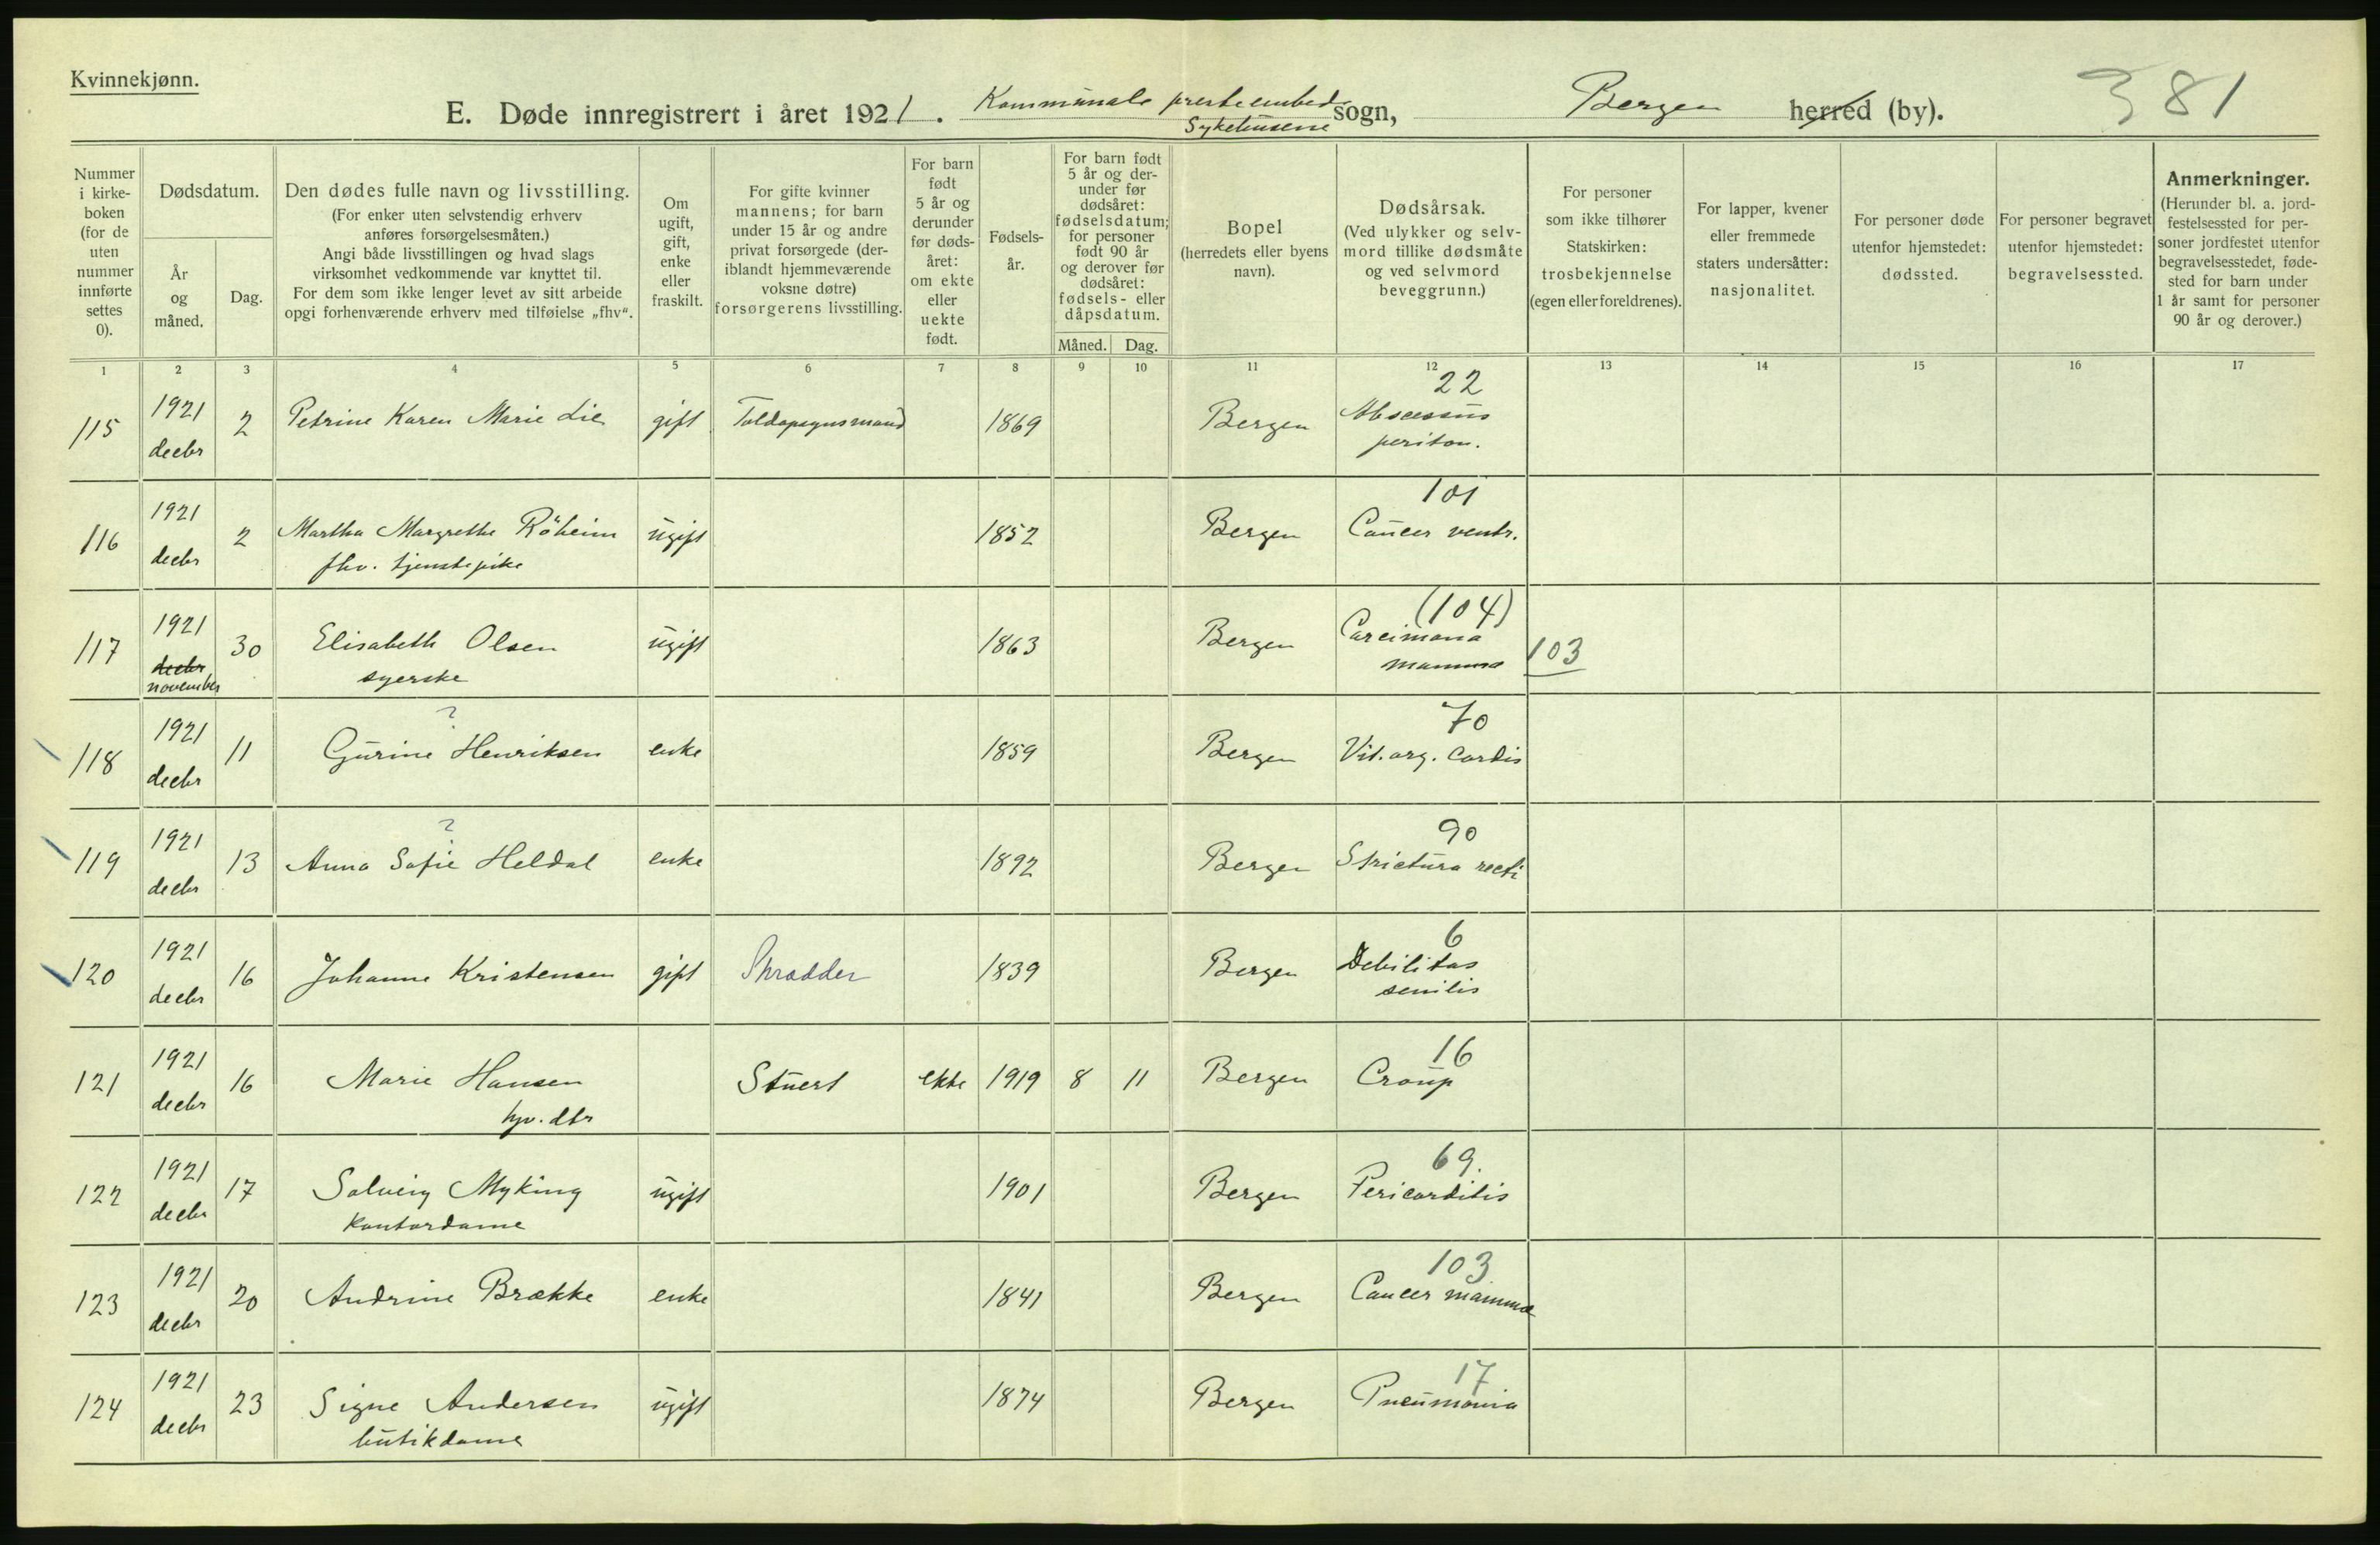 Kvinnekjønn.
E. Døde innregistrert i året 1921. Kommunale presteembed sogn, Bergen herred (by). 381
Sykehusene
Nummer i kirkeboken (for de uten nummer innførte settes 0).
Dødsdatum.
År og måned.
Dag.
Den dødes fulle navn og livsstilling.
(For enker uten selvstendig erhverv anføres forsørgelsesmåten.)
Angi både livsstillingen og hvad slags virksomhet vedkommende var knyttet til.
For dem som ikke lenger levet av sitt arbeide opgi forhenværende erhverv med tilføielse „fhv“.
Om ugift, gift, enke eller fraskilt.
For gifte kvinner mannens; for barn under 15 år og andre privat forsørgede (deriblandt hjemmeværende voksne døtre) forsørgerens livsstilling.
For barn født 5 år og derunder før dødsåret: om ekte eller uekte født.
Fødselsår.
For barn født 5 år og derunder før dødsåret: fødselsdatum; for personer født 90 år og derover før dødsåret: fødsels- eller dåpsdatum.
Måned. Dag.
Bopel (herredets eller byens navn).
Dødsårsak.
(Ved ulykker og selvmord tillike dødsmåte og ved selvmord beveggrunn.)
For personer som ikke tilhører Statskirken: trosbekjennelse (egen eller foreldrenes).
For lapper, kvener eller fremmede staters undersåtter: nasjonalitet.
For personer døde utenfor hjemstedet: dødssted.
For personer begravet utenfor hjemstedet: begravelsessted.
Anmerkninger.
(Herunder bl. a. jordfestelsessted for personer jordfestet utenfor begravelsesstedet, fødested for barn under 1 år samt for personer 90 år og derover.)
1 2 3 4 5 6 7 8 9 10 11 12 13 14 15 16 17
115 1921 decbr 2 Petrine Karen Marie Lie gift Toldopsynsmand 1869 Bergen 22 Abscessus periton.
116 1921 decbr 2 Martha Margrethe Röheim fhv. tjenstepike ugift 1852 Bergen 101 Cancer ventr.
117 1921 decbr november 30 Elisabeth Olsen syerske ugift 1863 Bergen (104) Carcimona mamma 103
118 1921 decbr 11 ? Gurine Henriksen enke 1859 Bergen 70 Vit. org. cordis
119 1921 decbr 13 ? Anna Sofie Heldal enke 1892 Bergen 90 Strictura recti
120 1921 decbr 16 Johanne Kristensen gift Skrædder 1839 Bergen 6 Debilitas senilis
121 1921 decbr 16 Marie Hansen hjv. dtr ekte Stuert 1919 8 11 Bergen 16 Croup
122 1921 decbr 17 Solveig Myking kontordame ugift 1901 Bergen 69. Pericarditis
123 1921 decbr 20 Andrine Brække enke 1841 Bergen 103 Cancer mamma
124 1921 decbr 23 Signe Andersen butikdame ugift 1874 Bergen 17 Pneumonia